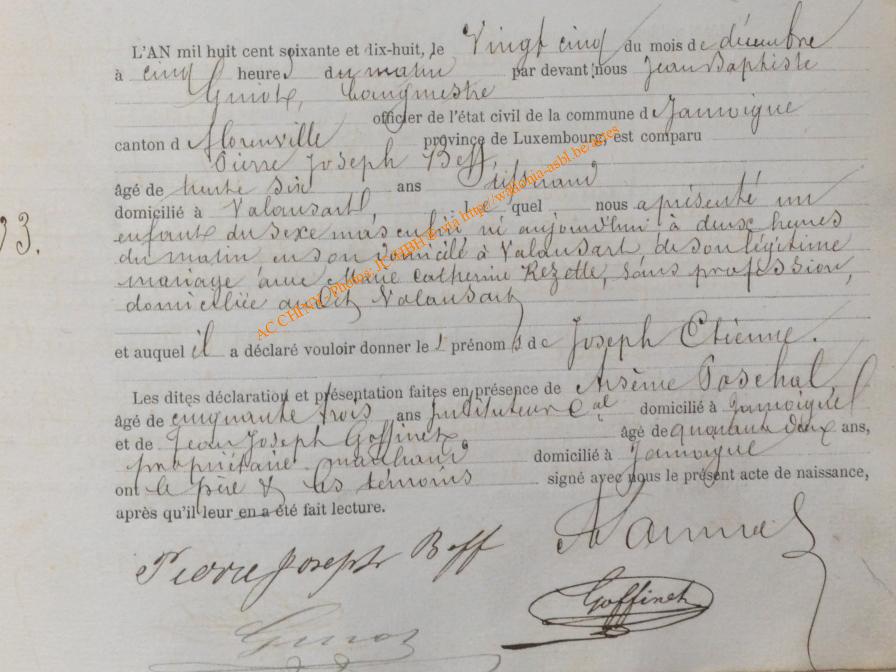 L'AN mil huit cent soixante et dix-huit, le Vingt cinq du mois de décembre
à cinq heures du matin par devant nous Jean Baptiste
Guiot, bourgmestre
officier de l'état civil de la commune d Jamoigne
canton d Florenville province de Luxembourg, est comparu
Pierre Joseph Boff,
âgé de trente six ans Tisserand
domicilié à Valansart, lequel nous a présenté un
93.
enfant du sexe masculin né aujourd'hui à deux heures
du matin en son domicile à Valansart de son légitime
mariage avec Marie Catherine Rezette, sans profession,
domiciliée au dit Valansart
et auquel il a déclaré vouloir donner les prénoms de Joseph Etienne.
Les dites déclaration et présentation faites en présence de Arsène Paschal,
âgé de cinquante trois ans Instituteur Cal domicilié à Jamoigne
et de Jean Joseph Goffinet âgé de quarante deux ans,
propriétaire marchand domicilié à Jamoigne
ont le père & les témoins signé avec nous le présent acte de naissance,
après qu'il leur en a été fait lecture.
Pierre Joseph Boff
Goffinet
Guiot
AC CHINY- Photos: JCH/BH & via http://wallonia-asbl.be/actes